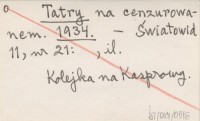 Tatry na cenzurowa-
nem. 1934. - Światowid
11, nr 21: , il.
Kolejka na Kasprowy.